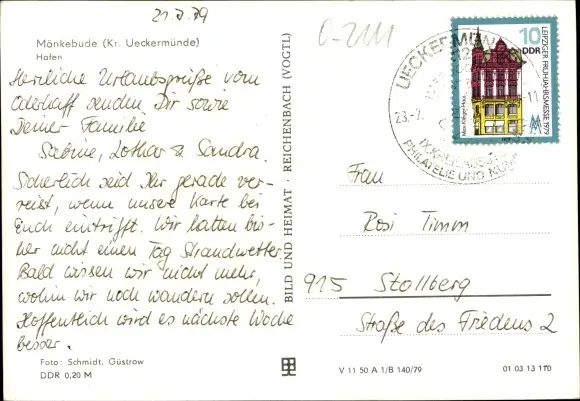 21.7.79
0-2111
Mönkebude (Kr. Ueckermünde)
Hafen
Herzliche Urlaubsgrüße vom
Oderhaff senden Dir sowie
Deiner Familie
Sabine, Lothar & Sandra.
Sicherlich seid Ihr gerade ver-
reist, wenn unsere Karte bei
Euch eintrifft. Wir hatten bis-
her nicht einen Tag Strandwetter.
Bald wissen wir nicht mehr,
wohin wir noch wandern sollen.
Hoffentlich wird es nächste Woche
besser.
Foto: Schmidt, Güstrow
DDR 0,20 M
BILD UND HEIMAT · REICHENBACH (VOGTL)
UECKERMÜNDE
23.-7.
-11
PHILATELIE UND
10
DDR
LEIPZIGER FRÜHJAHRSMESSE 1979
MM
Frau
Rosi Timm
915 Stollberg
Straße des Friedens 2
V 11 50 A 1/B 140/79
01 03 13 110